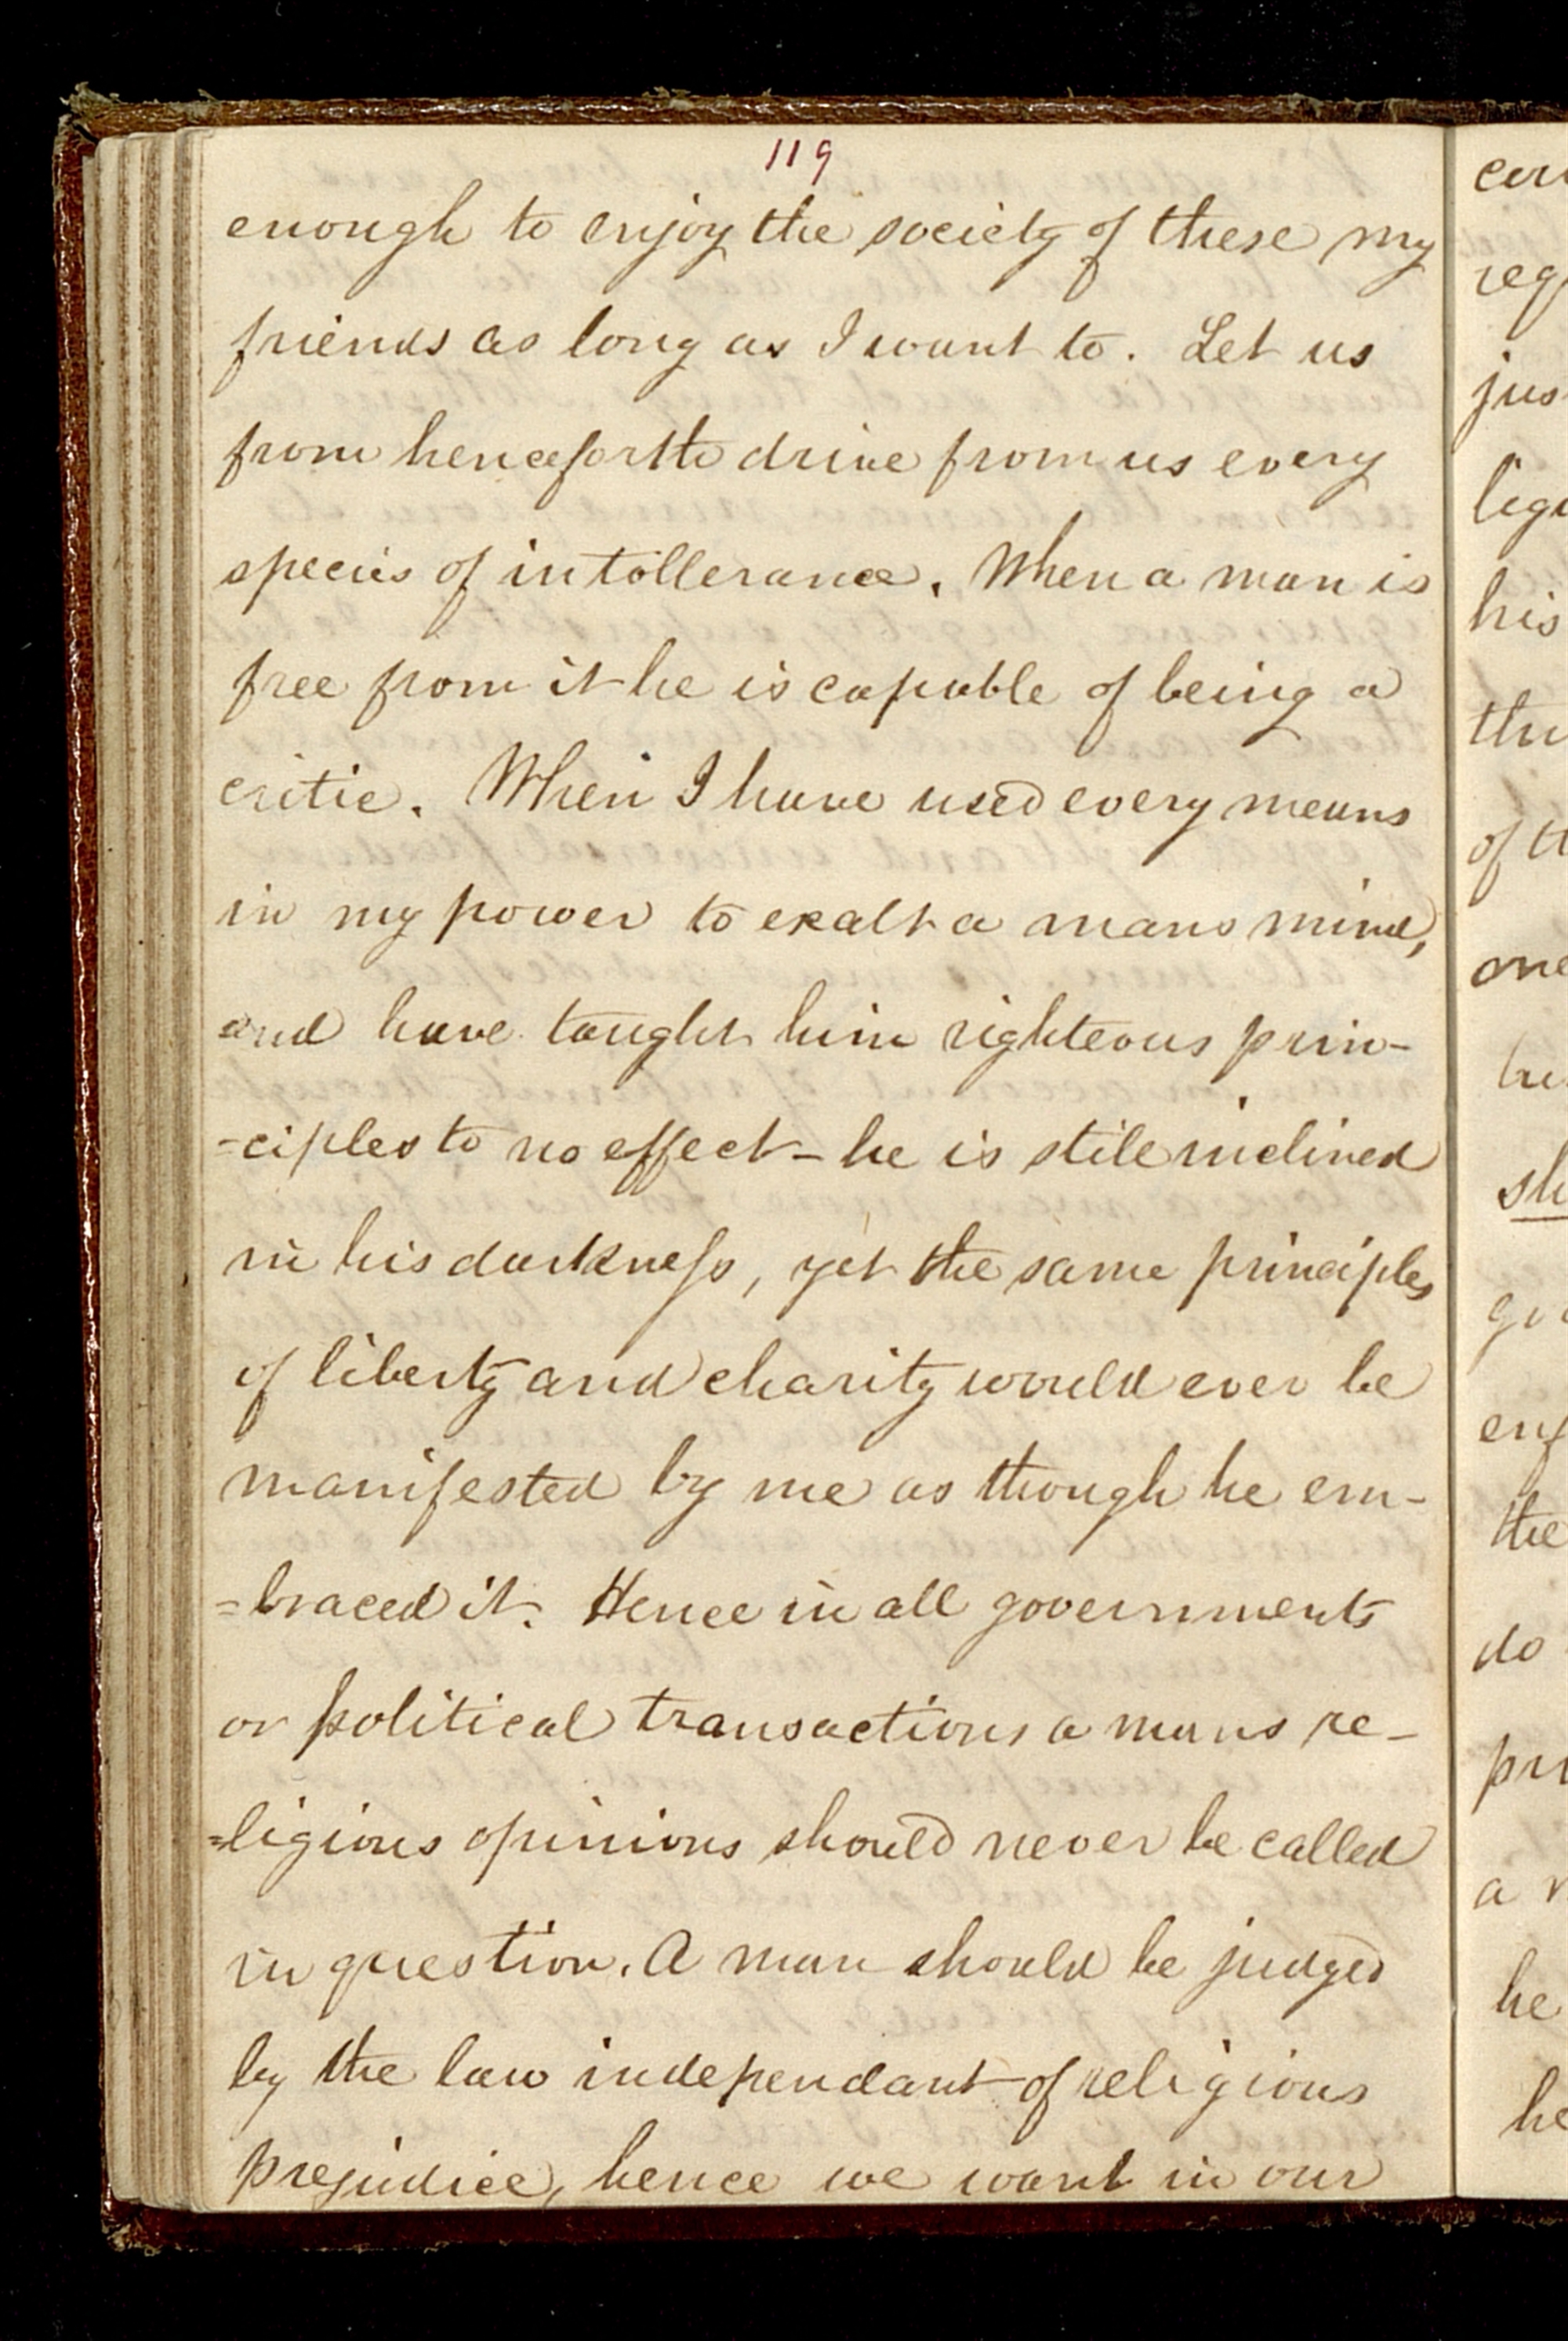 119
enough to enjoy the society of these my
friends as long as I want to. Let us
from henceforth drive from us every
species of intollerance. When a man is
free from it he is capable of being a
critic. When I have used every means
in my power to exalt a mans mind,
and have taught him righteous prin-
-ciples to no effect - he is still inclined
in his darkness, yet the same principles
of liberty and charity would ever be
manifested by me as though he em-
=braced it. Hence in all governments
or political transactions a mans re-
=ligious opinions should never be called
in question. A man should be judged
by the law independant of religious
prejudice, hence we want in our
reg
jus
his
of
one
sh
the
do
a
he
he